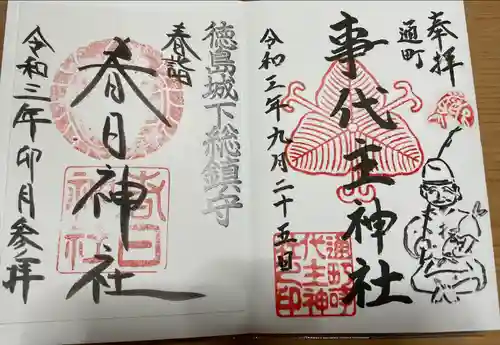 奉拝
通町
事代主神社
令和三年九月二十五日
徳島城下総鎮守
春詣
春日神社
令和三年卯月参拝
春日
神社